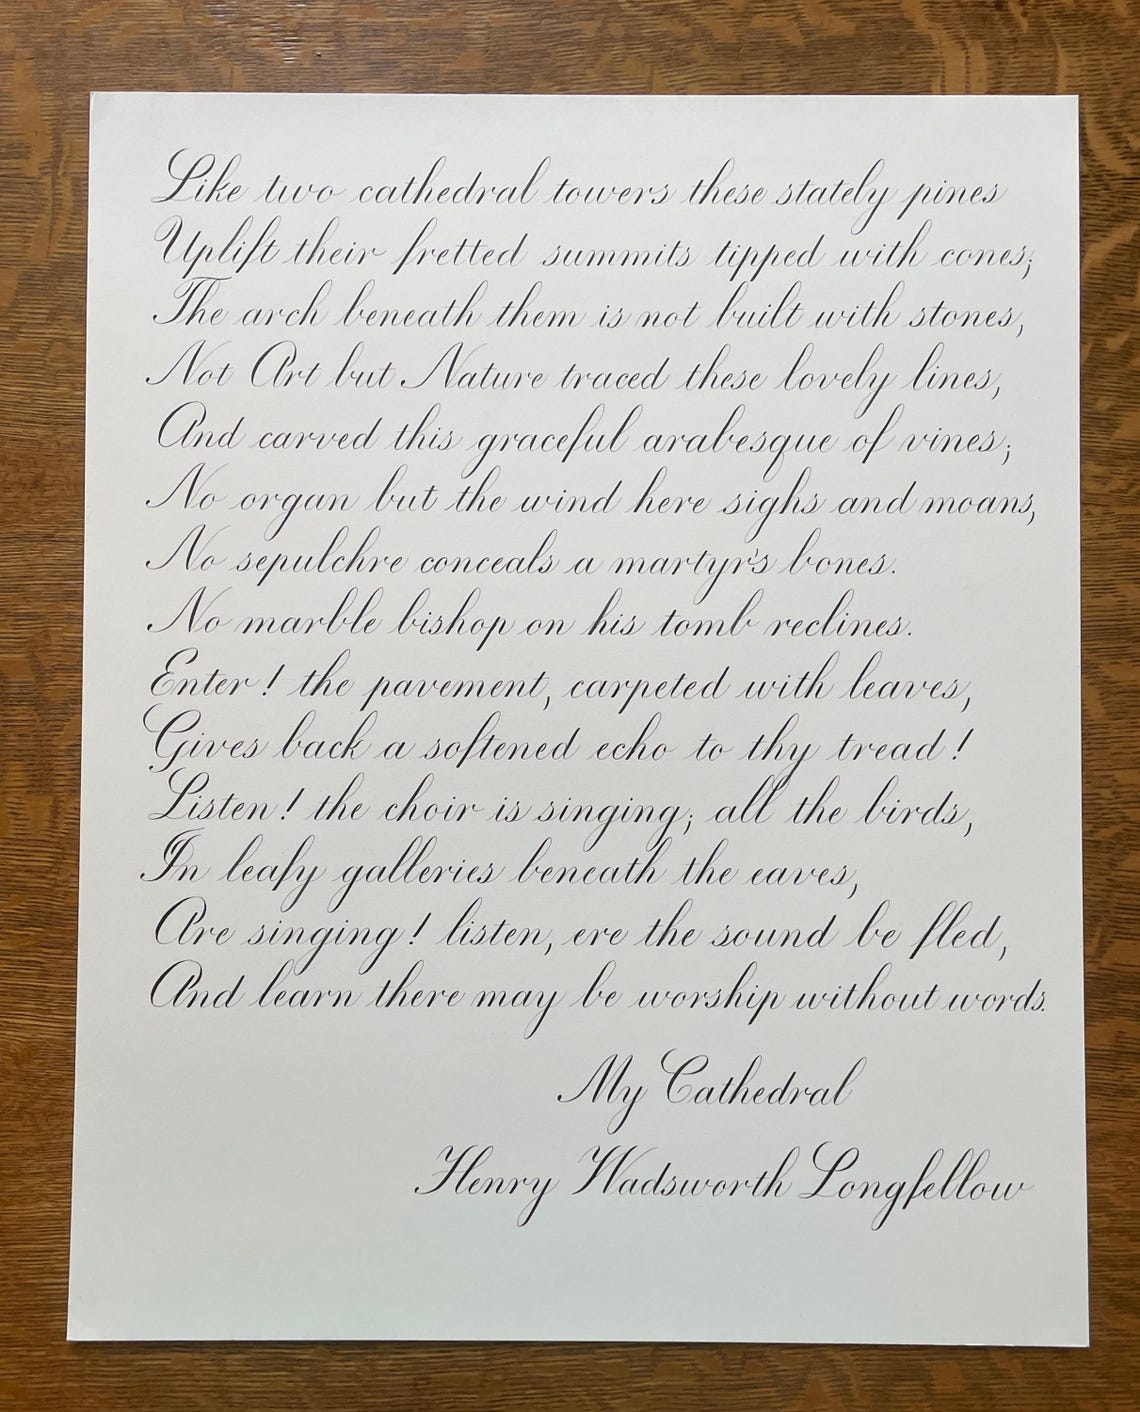 Like two cathedral towers these stately pines
Uplift their fretted summits tipped with cones;
The arch beneath them is not built with stones,
Not Art but Nature traced these lovely lines,
And carved this graceful arabesque of vines;
No organ but the wind here sighs and moans,
No sepulchre conceals a martyr's bones.
No marble bishop on his tomb reclines.
Enter! the pavement, carpeted with leaves,
Gives back a softened echo to thy tread!
Listen! the choir is singing; all the birds,
In leafy galleries beneath the eaves,
Are singing! listen, ere the sound be fled,
And learn there may be worship without words.
My Cathedral
Henry Wadsworth Longfellow